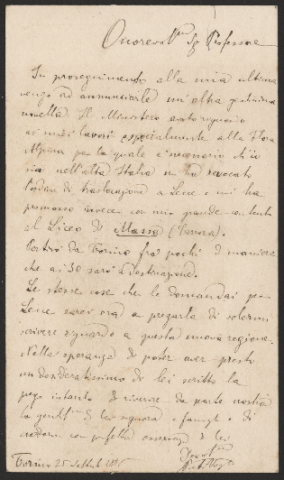 Onorevo Sig. Professore
In proseguimento alla mia ultima
vengo ad annunciarle un'altra
novella. Il Ministero avuto riguardo
ai miei lavori specialmente alla Flora
Alpina per la quale è necessario ch'io
sia nell'alta Italia mi ha revocato
l'ordine di traslocazione a Lecce e mi ha
invece con mio grande contento
al Liceo di Massa (Carrara).
Partirò da Torino fra pochi dì maniera
che ai 30 sarò a destinazione.
Le stesse cose che le domandai per
Lecce sarei ora a pregarla di volermi
scrivere riguardo a questa nuova regione.
Nella speranza di poter aver presto
un desideratissimo di lei scritto la
prego intanto di riverire da parte nostra
la di lei signora e di
credermi con perfetta osservanza di lei
Torino 25